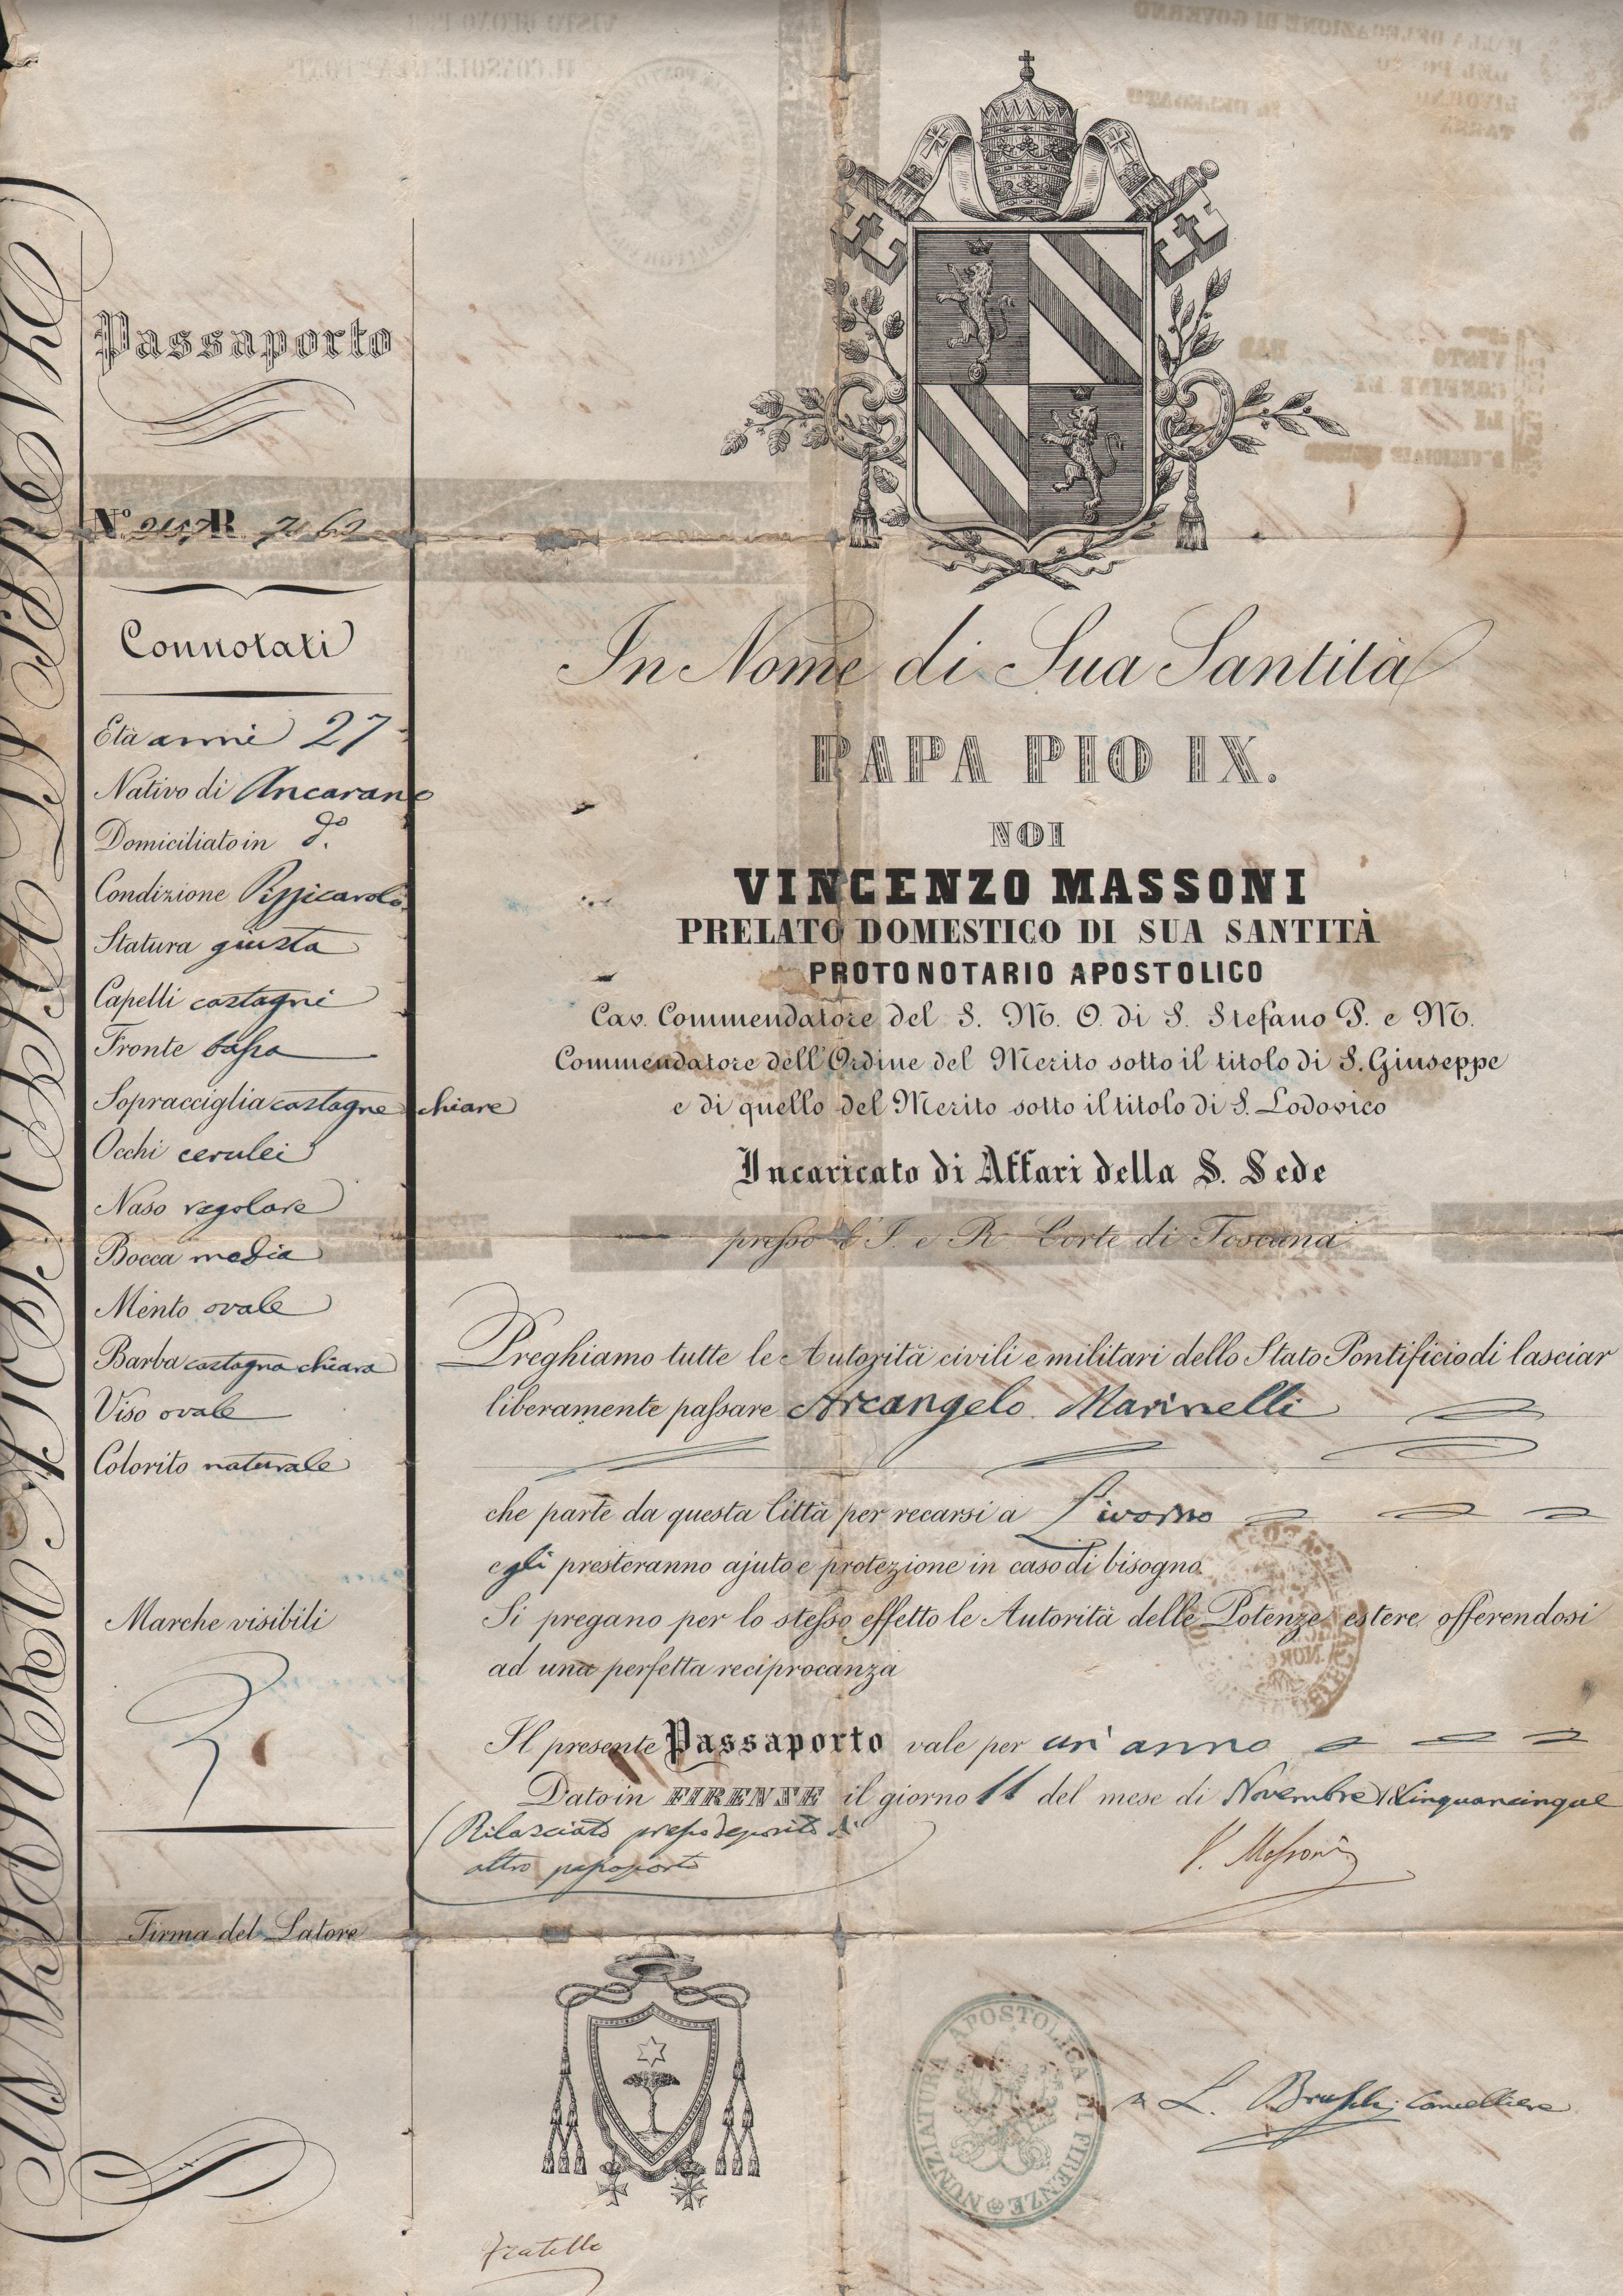 Passaporto
Nº
Connotati
Età anni 27
Nativo di Ancarano
Domiciliato in dº.
Condizione Pizzicarolo
Statura giusta
Capelli castagni
Fronte bassa
Sopracciglia castagne chiare
Occhi cerulei
Naso regolare
Bocca media
Mento ovale
Barba castagna chiara
Viso ovale
Colorito naturale
Marche visibili
Firma del Latore
In Nome di Sua Santità
PAPA PIO IX.
NOI
VINCENZO MASSONI
PRELATO DOMESTICO DI SUA SANTITÀ
PROTONOTARIO APOSTOLICO
Cav. Commendatore del S. M. O. di S. Stefano P. e M.
Commendatore dell'Ordine del Merito sotto il titolo di S. Giuseppe
e di quello del Merito sotto il titolo di S. Lodovico
Incaricato di Affari della S. Sede
presso l'I. e R. Corte di Toscana
Preghiamo tutte le Autorità civili e militari dello Stato Pontificio di lasciar
liberamente passare Arcangelo Marinelli
che parte da questa Città per recarsi a Livorno
e gli presteranno ajuto e protezione in caso di bisogno.
Si pregano per lo stesso effetto le Autorità delle Potenze estere, offerendosi
ad una perfetta reciprocanza
Il presente Passaporto vale per un' anno
Dato in FIRENZE il giorno 11 del mese di Novembre Cinquancinque
(Rilasciato presso deposito di
altro passaporto
V. Massoni
NUNZIATURA APOSTOLICA DI FIRENZE
L. Cancelliere
Fratelli